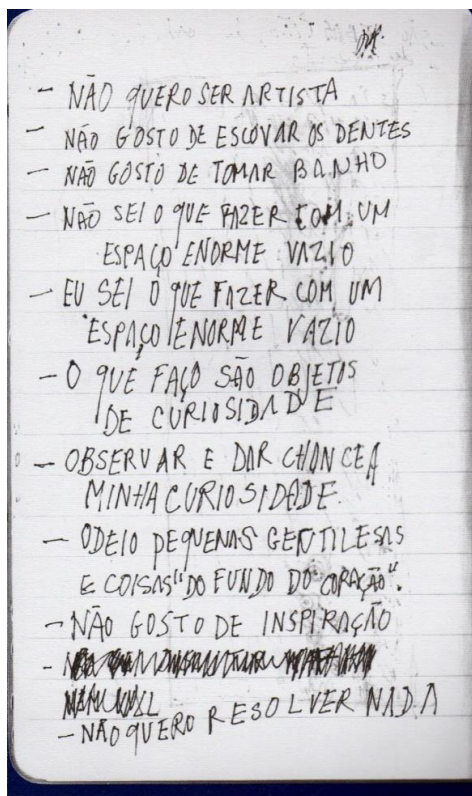 - NÃO QUERO SER ARTISTA
- NÃO GOSTO DE ESCOVAR OS DENTES
- NÃO GOSTO DE TOMAR BANHO
- NÃO SEI O QUE FAZER COM UM
ESPAÇO ENORME VAZIO
- EU SEI O QUE FAZER COM UM
ESPAÇO ENORME VAZIO
- O QUE FAÇO SÃO OBJETOS
DE CURIOSIDADE
- OBSERVAR E DAR CHANCE A
MINHA CURIOSIDADE
- ODEIO PEQUENAS GENTILESAS
E COISAS "DO FUNDO DO CORAÇÃO".
- NÃO GOSTO DE INSPIRAÇÃO
- NÃO QUERO RESOLVER NADA